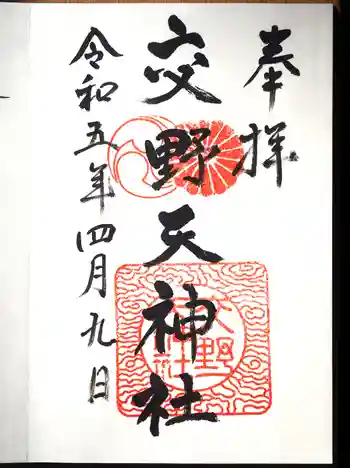 奉拝
交野天神社
令和五年四月九日
交野天神社